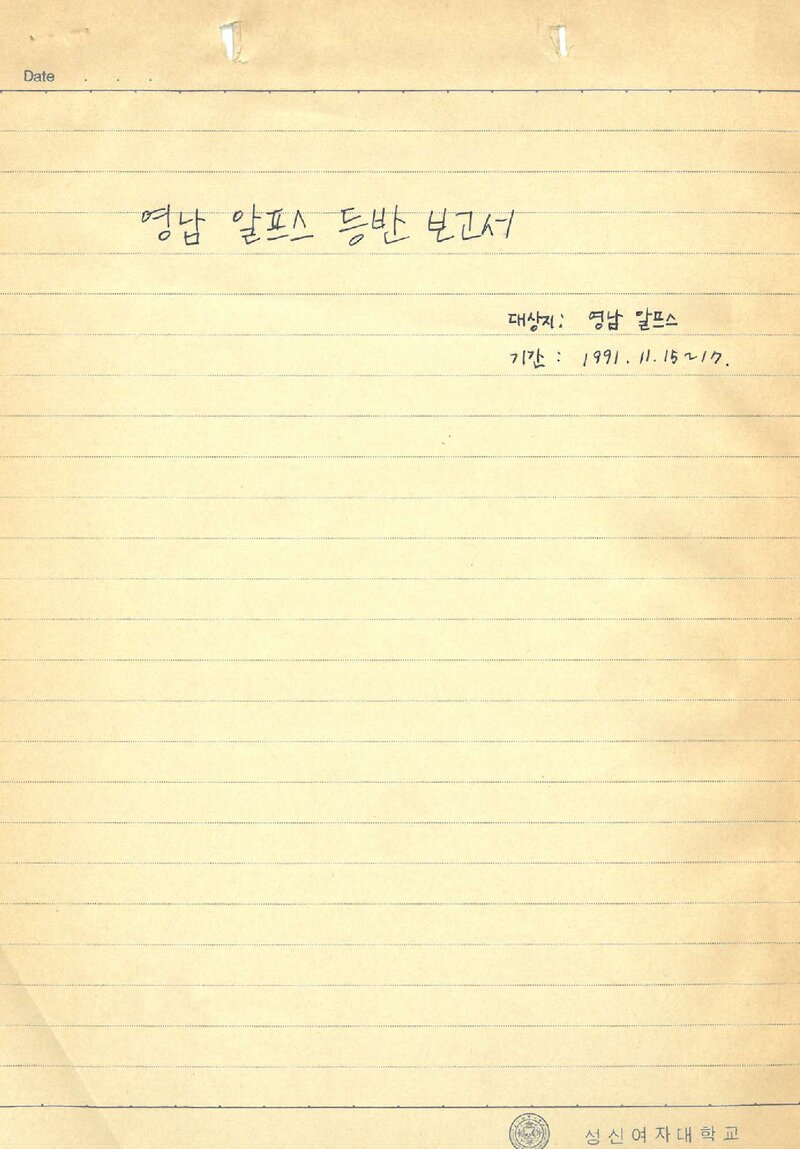 Date . . .
영남 알프스 등반 보고서
대상지: 영남 알프스
기간 : 1991. 11. 15~17.
성신여자대학교